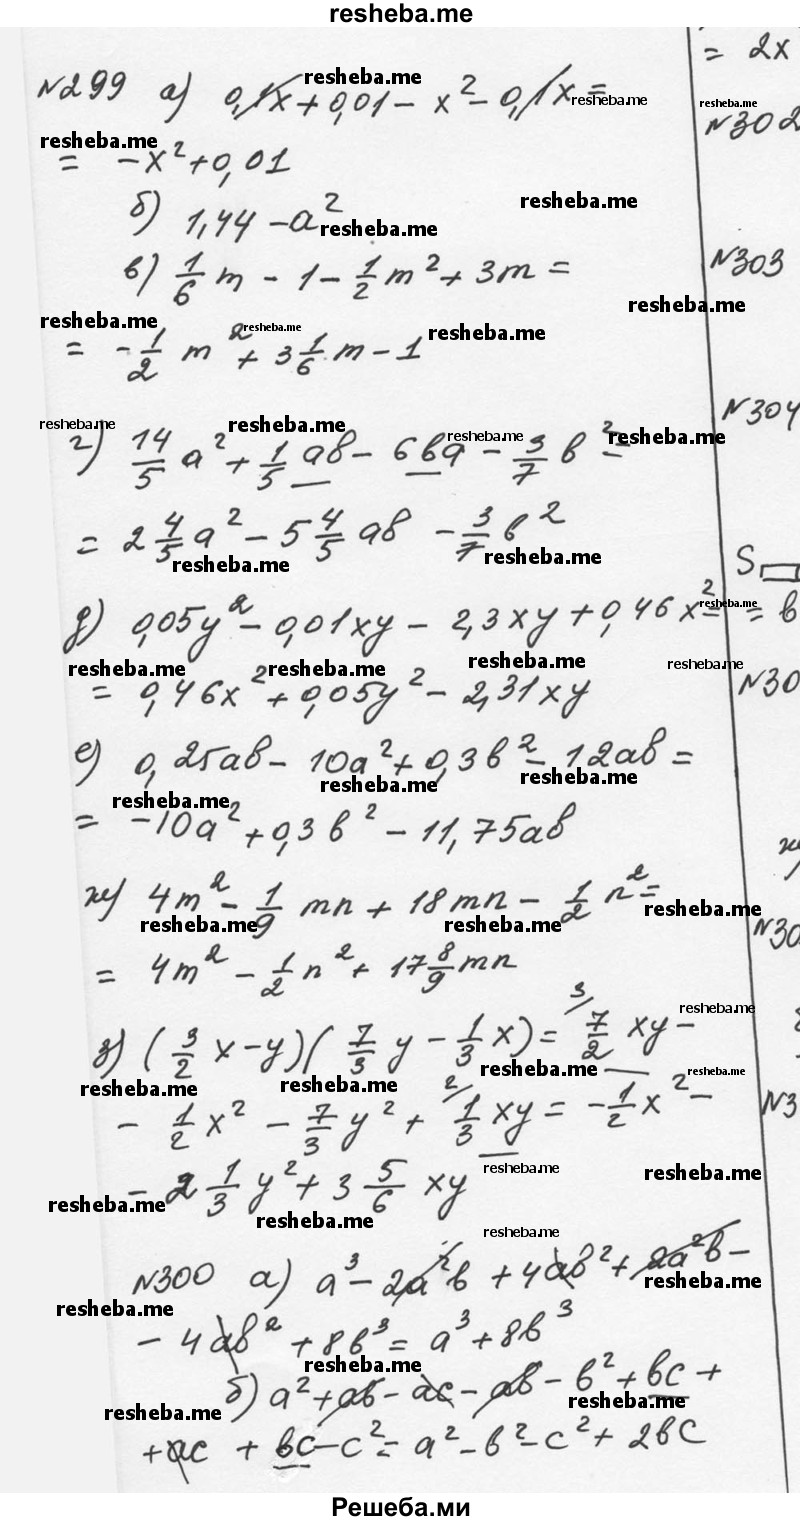 resheba.me
№299 а) 0,1x + 0,01 - x² - 0,1x =
= -x² + 0,01
б) 1,44 - a²
в) 1/6 m - 1 - 1/2 m² + 3m =
= -1/2 m² + 3 1/6 m - 1
г) 14/5 a² + 1/5 ab - 6ba - 3/7 b² =
= 2 4/5 a² - 5 4/5 ab - 3/7 b²
д) 0,05y² - 0,01xy - 2,3xy + 0,46x² =
= 0,46x² + 0,05y² - 2,31xy
е) 0,25ab - 10a² + 0,3b² - 12ab =
= -10a² + 0,3b² - 11,75ab
ж) 4m² - 1/9 mn + 18mn - 1/2 n² =
= 4m² - 1/2 n² + 17 8/9 mn
з) (3/2 x - y)(7/3 y - 1/3 x) = 3/ 7/2 xy -
- 1/2 x² - 7/3 y² + 2/ 1/3 xy = -1/2 x² -
- 2 1/3 y² + 3 5/6 xy
№300 а) a³ - 2a²b + 4ab² + 2a²b -
- 4ab² + 8b³ = a³ + 8b³
б) a² + ab - ac - ab - b² + bc +
+ ac + bc - c² = a² - b² - c² + 2bc
= 2x
№302
№303
№304
S
= b
№30
ж
№30
№3
Решеба.ми